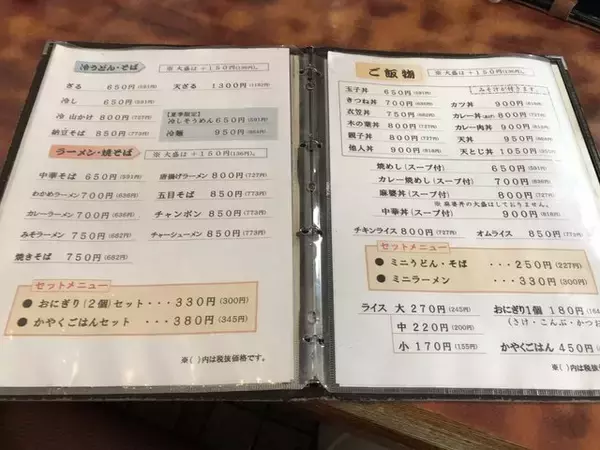 冷うどん・そば ※ 大盛は＋150円(136円)。
ざる 650円(591円) 天ざる 1300円(1182円)
冷し 650円(591円)
冷 山かけ 800円(727円)
納豆そば 850円(773円)
【夏季限定】
冷しそうめん 650円(591円)
冷麺 950円(864円)
ラーメン・焼そば ※ 大盛は＋150円(136円)。
中華そば 650円(591円) 唐揚げラーメン 800円(727円)
わかめラーメン 700円(636円) 五目そば 850円(773円)
カレーラーメン 700円(636円) チャンポン 850円(773円)
みそラーメン 750円(682円) チャーシューメン 850円(773円)
焼きそば 750円(682円)
セットメニュー
● おにぎり(2個)セット・・・330円(300円)
● かやくごはんセット・・・380円(345円)
※( )内は税抜価格です。
ご飯物 ※ 大盛は＋150円(136円)。
みそ汁が付きます。
玉子丼 650円(591円)
きつね丼 700円(636円) カツ丼 900円(818円)
衣笠丼 750円(682円) カレー丼(うどん) 800円(727円)
木の葉丼 800円(727円) カレー肉丼 900円(818円)
親子丼 800円(727円) 天丼 950円(864円)
他人丼 900円(818円) 天とじ丼 1050円
焼めし(スープ付) 650円(591円)
カレー焼めし(スープ付) 700円(636円)
麻婆丼(スープ付) 800円
※ 麻婆丼の大盛はしておりません。
中華丼(スープ付) 900円(818円)
チキンライス 800円(727円) オムライス 850円(773円)
セットメニュー
● ミニうどん・そば・・・250円(227円)
● ミニラーメン・・・330円(300円)
ライス 大 270円(245円) おにぎり1個 180円(164
中 220円(200円) (さけ・こんぶ・かつお
小 170円(155円) かやくごはん 450円(
※( )内は税抜価格です。